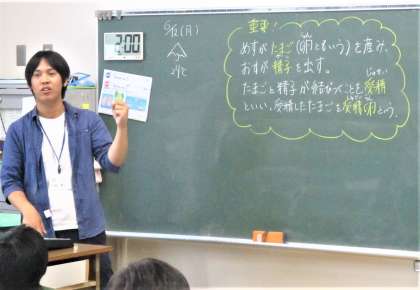 2:00
5/12(月)
24℃
重要!
めすがたまご(卵ともいう)を産み、
おすが精子を出す。
じゅせい
たまごと精子が結びつくことを受精
といい、受精したたまごを受精卵という。